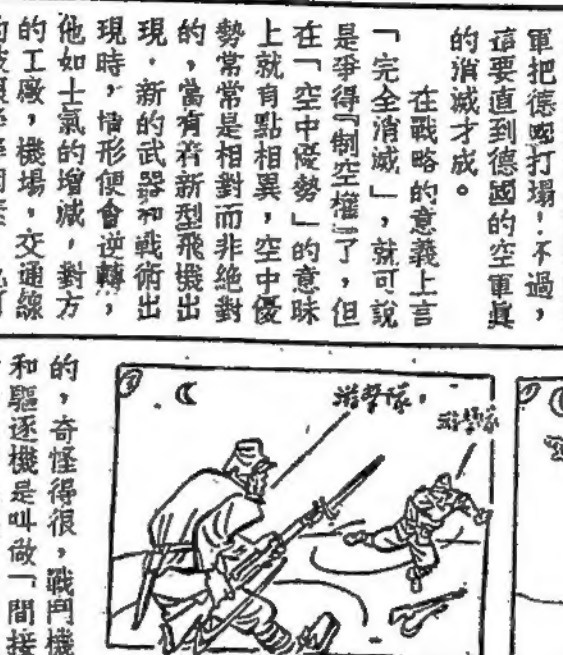 軍把德國打塌！不過，
這要直到德國的空軍眞
的消滅才成。
在戰略的意義上言
「完全消滅」，就可說
是爭得『制空權』了，但
在「空中優勢」的意味
上就有點相異，空中優
勢常常是相對而非絕對
的，當有着新型飛機出
現，新的武器和戰術出
現時，情形便會逆轉，
他如士氣的增減，對方
的工廠，機場，交通線
游擊隊
游擊隊
的，奇怪得很，戰鬥機
和驅逐機是叫做「間接